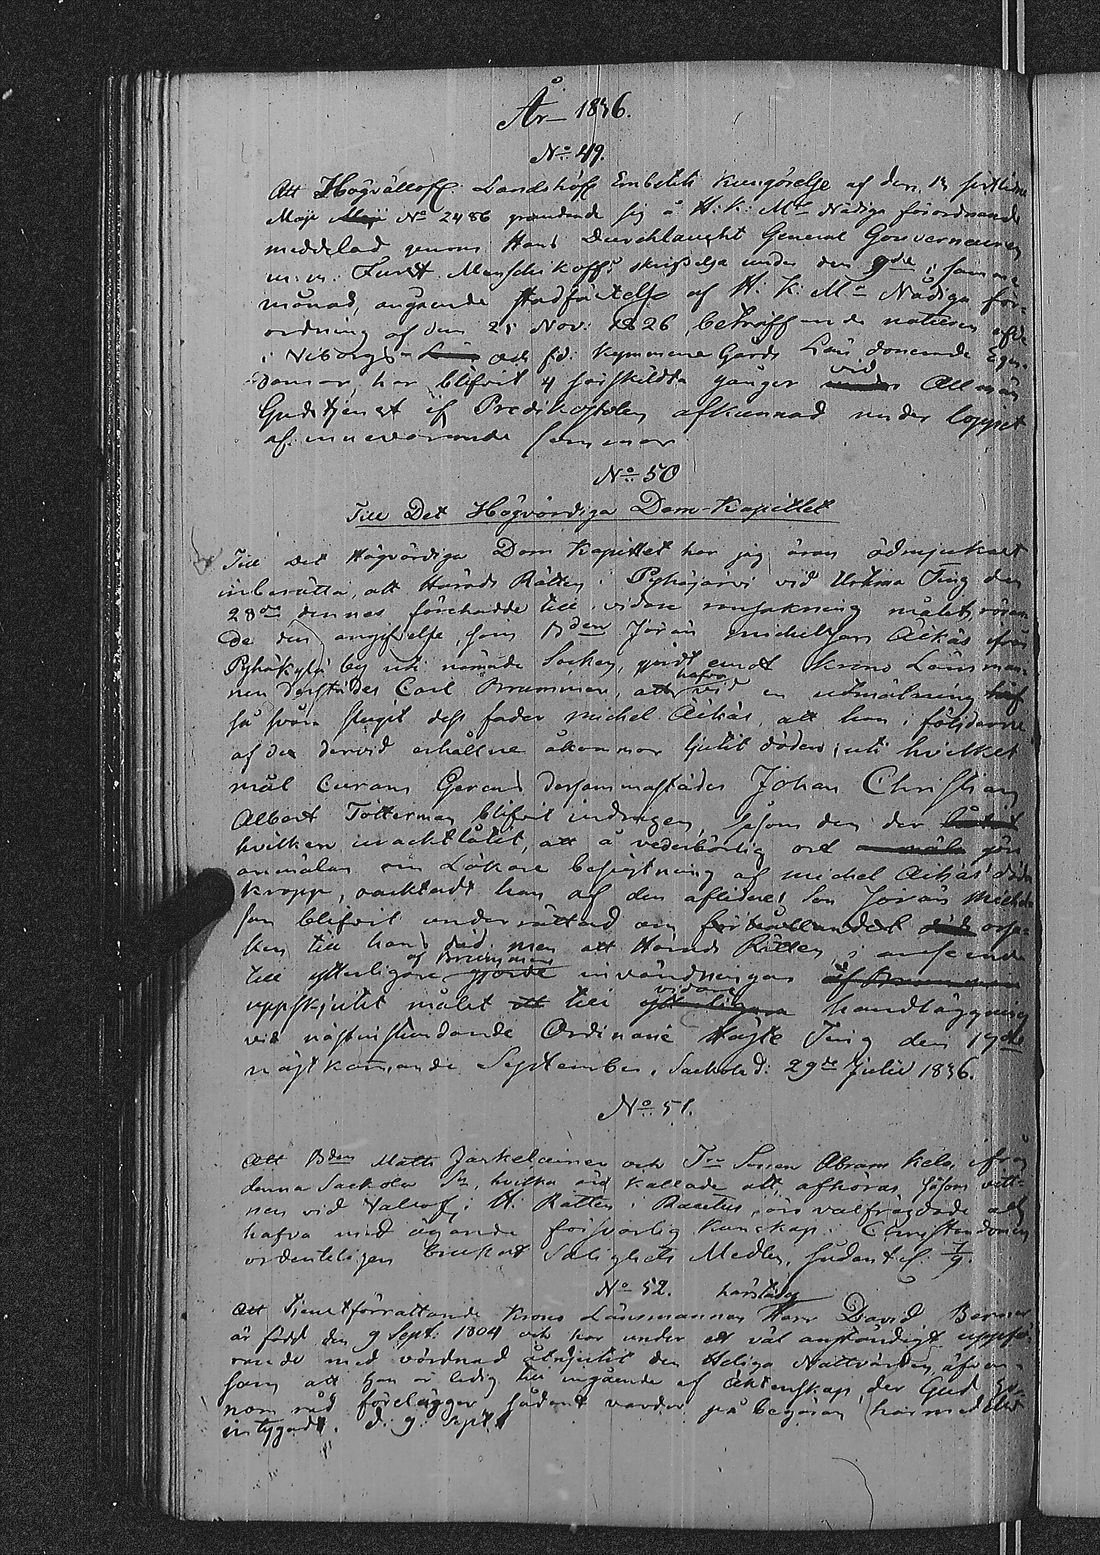 År 1836.
No 49.
Att Högvällofl. Landshöfd. Embetets Kungörelse af den 13 sistledne
Maji No 2486 grundande sig å H. K. Mts Nådiga förordnande
meddelad genom Hans Durchlaucht General Gouverneuren
m. m. Furst Menschikoffs skrifvelse under den 9de i samma
månad, angående Stadfästelse af H. K. Mts Nådiga för-
ordning af den 25 Nov: 1826, beträffande naturen af de
i Wiborgs och f.d. Kymmene Gårds Län donerade Egen-
domar, har blifvit 4 särskildta gånger vid Allmän
Gudstjenst ifr Predikostolen afkunnad under loppet
af innevarande sommar.
No 50
Till Det Högvördiga Dom-Kapitlet
Till Det Högvördiga Dom Kapitlet har jag äran ödmjukast
inberätta, att Härads Rätten i Pyhäjärvi vid Urtima Ting den
28de dennes förehadde till vidare ransakning målet, röran-
de den angifvelse, som Bden Jöran Michelsson Äikäs från
Pyhäkylä by uti nämnde Socken, gjort emot Krono Länsman-
nen derstädes Carl Brummer, att hafva vid en utmätning
så svårt slagit dess fader Michel Äikäs, att han i följderne
af de dervid erhållne åkommor ljutit döden; uti hvilket
mål Curam Gerens dersammastädes Johan Christian
Albert Tötterman blifvit indragen, såsom den der
hvilken uraktlåtit, att å vederbörlig ort göra
anmälan om Läkare besigtning af Michel Äikäs' döda
kropp, oaktadt han af den aflidnes son Jöran Michels-
son blifvit underrättad om orsa-
ken till hans död; men att Härads Rätten, i anseende
till ytterligare af Brummer invändningar
uppskjutit målet till vidare handläggning
vid nästinstundande Ordinarie Höste Ting den 17de
nästkommande September. Sackola d: 29de Julii 1836.
No 51.
Att Bden Matts Jäskeläinen och Sonen Abram ifrån
denna Sackola Sn, hvilka äro kallade att afhöras såsom vitt-
nen vid H. Rätten i Rautus, äro välfrägdade och
hafva med ägande försvarlig kunskap i Christendomen
ordentligen bruckat Salighets Medlen, Sådant &c. 7/9.
No 52.
Att Tjenstförrättande Krono Länsmannen härstädes Herr David
är född den 9 Sept: 1804 och har under ett väl anständigt uppfö-
rande med vördnad åtnjutit den Heliga Nattvarden, äfven-
som att han är ledig till ingående af äktenskap, der Gud ge-
nom råd förelägger sådant varder på begäran härmedelst
intygadt. d. 9 Sept.